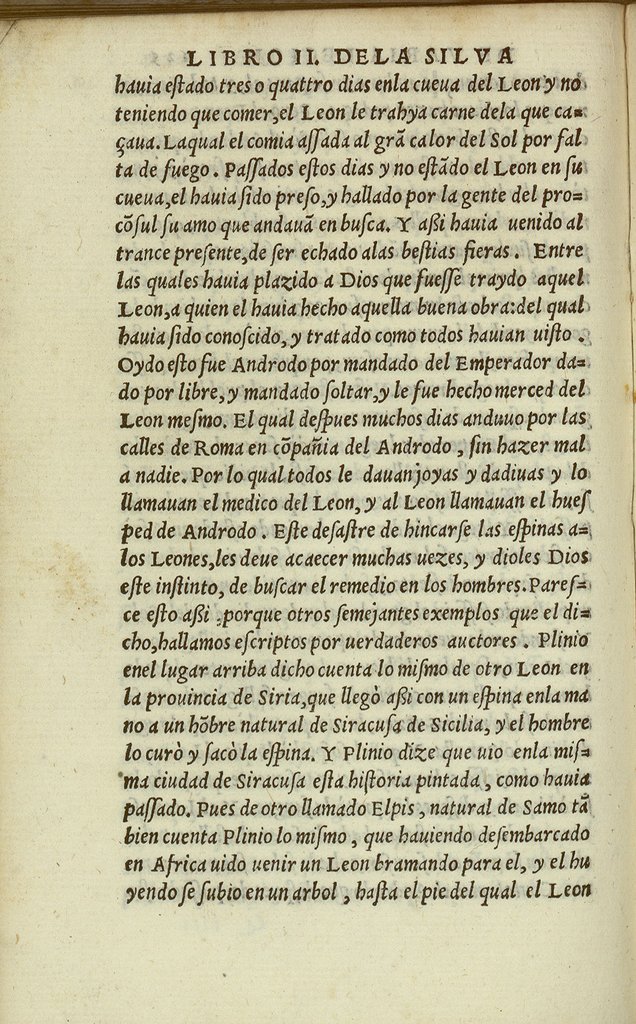 LIBRO II. DELA SILVA
hauia eſtado tres o quattro dias enla cueua del Leon y no
teniendo que comer, el Leon le trahya carne dela que ca=
çaua. Laqual el comia aſſada al grã calor del Sol por fal
ta de fuego. Paſſados eſtos dias y no eſtãdo el Leon en ſu
cueua, el hauia ſido preſo, y hallado por la gente del pro=
cõſul ſu amo que andauã en buſca. Y aßi hauia uenido al
trance preſente, de ſer echado alas beſtias fieras. Entre
las quales hauia plazido a Dios que fueſſe traydo aquel
Leon, a quien el hauia hecho aquella buena obra: del qual
hauia ſido conoſcido, y tratado como todos hauian uiſto.
Oydo eſto fue Androdo por mandado del Emperador da=
do por libre, y mandado ſoltar, y le fue hecho merced del
Leon meſmo. El qual deſpues muchos dias anduuo por las
calles de Roma en cõpañia del Androdo, ſin hazer mal
a nadie. Por lo qual todos le dauan joyas y dadiuas y lo
llamauan el medico del Leon, y al Leon llamauan el hueſ
ped de Androdo. Eſte deſaſtre de hincarſe las eſpinas a=
los Leones, les deue acaecer muchas uezes, y dioles Dios
eſte inſtinto, de buſcar el remedio en los hombres. Pareſ=
ce eſto aßi porque otros ſemejantes exemplos que el di=
cho, hallamos eſcriptos por uerdaderos auctores. Plinio
enel lugar arriba dicho cuenta lo miſmo de otro Leon en
la prouincia de Siria, que llegò aßi con un eſpina enla ma
no a un hõbre natural de Siracuſa de Sicilia, y el hombre
lo curò y ſacò la eſpina. Y Plinio dize que uio enla miſ=
ma ciudad de Siracuſa eſta hiſtoria pintada, como hauia
paſſado. Pues de otro llamado Elpis, natural de Samo tã
bien cuenta Plinio lo miſmo, que hauiendo deſembarcado
en Africa uido uenir un Leon bramando para el, y el hu
yendo ſe ſubio en un arbol, haſta el pie del qual el Leon